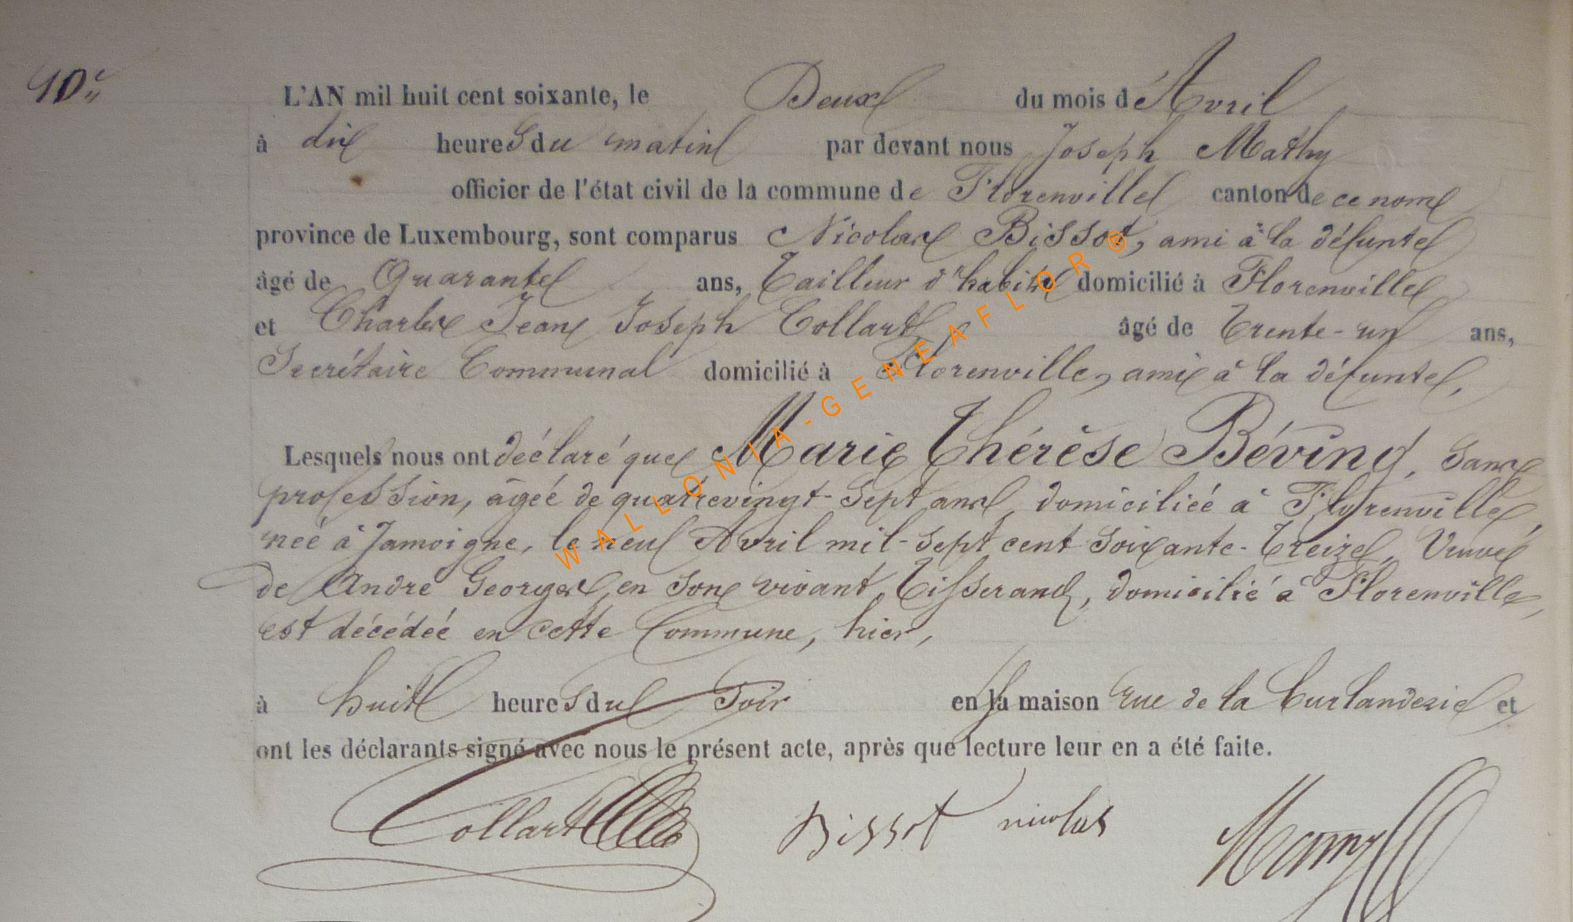 10e
L'AN mil huit cent soixante, le Deux du mois d'Avril
à dix heures du matin par devant nous Joseph Mathy
officier de l'état civil de la commune de Florenville canton de ce nom
province de Luxembourg, sont comparus Nicolas Bissot, ami à la défunte
âgé de Quarante ans, Tailleur d'habits domicilié à Florenville
et Charles Jean Joseph Collart, âgé de Trente-un ans,
Secrétaire Communal domicilié à Florenville, ami à la défunte,
Lesquels nous ont déclaré que Marie Thérèse Béving, sans
profession, âgée de quatrevingt-sept ans, domiciliée à Florenville,
née à Jamoigne, le neuf Avril mil-sept cent soixante-Treize, Veuve
de André Georges, en son vivant, Tisserand, domicilié à Florenville,
est décédée en cette Commune, hier,
à huit heures du soir en la maison rue de la et
ont les déclarants signé avec nous le présent acte, après que lecture leur en a été faite.
Collart Bissot nicolas
WALLONIA-GENEAFLOR®